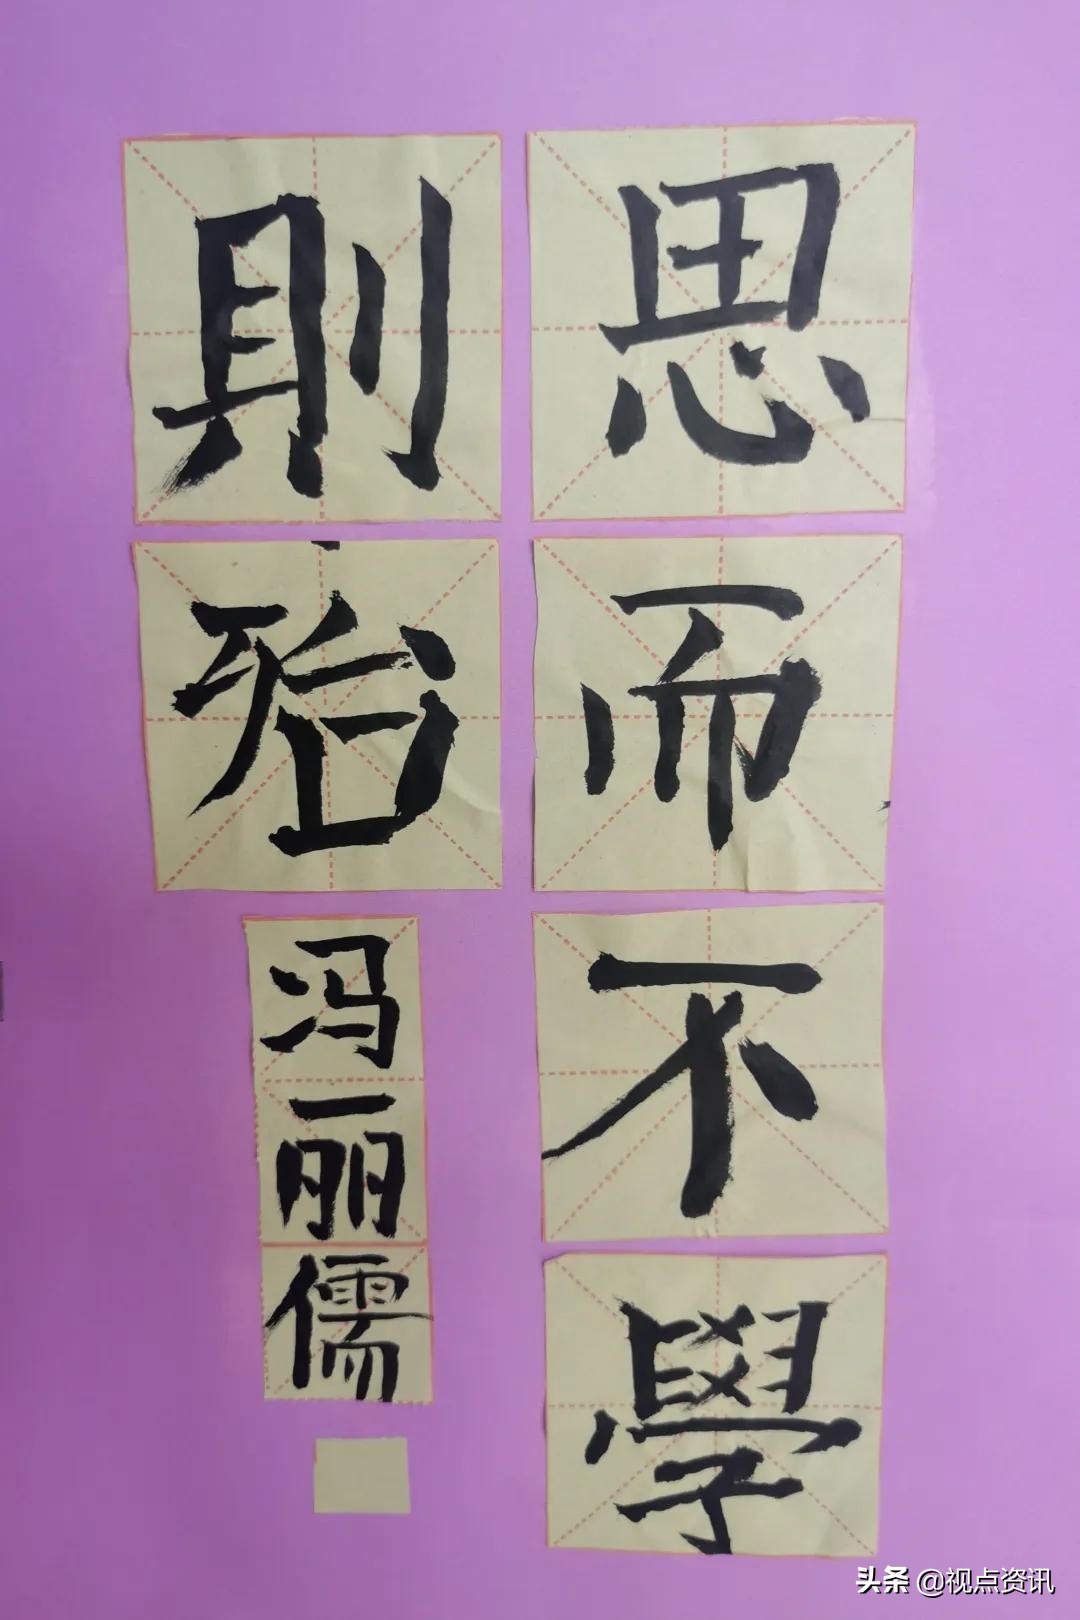 思而不學
則殆
冯丽儒
头条 @视点资讯